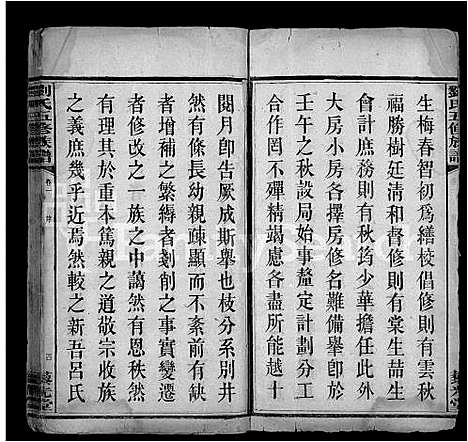 劉氏五修族譜
生梅春智初為繕校倡修則有雲秋
福勝樹廷清和督修則有棠生喆生
會計庶務則有秋筠少華擔任此外
大房小房各擇房修名難備舉卽於
壬午之秋設局始事釐定計劃分工
合作罔不殫精竭慮各盡所能越十
閱月卽告厥成斯舉也枝分系別井
然有條長幼親疎顯而不紊前有缺
者增補之繁縟者剗削之事實變遷
者修改之一族之中藹然有恩秩然
有序其於重本篤親之道敬宗收族
之義庶幾乎近焉然較之新吾呂氏
劉氏五修族譜
卷一
序
四